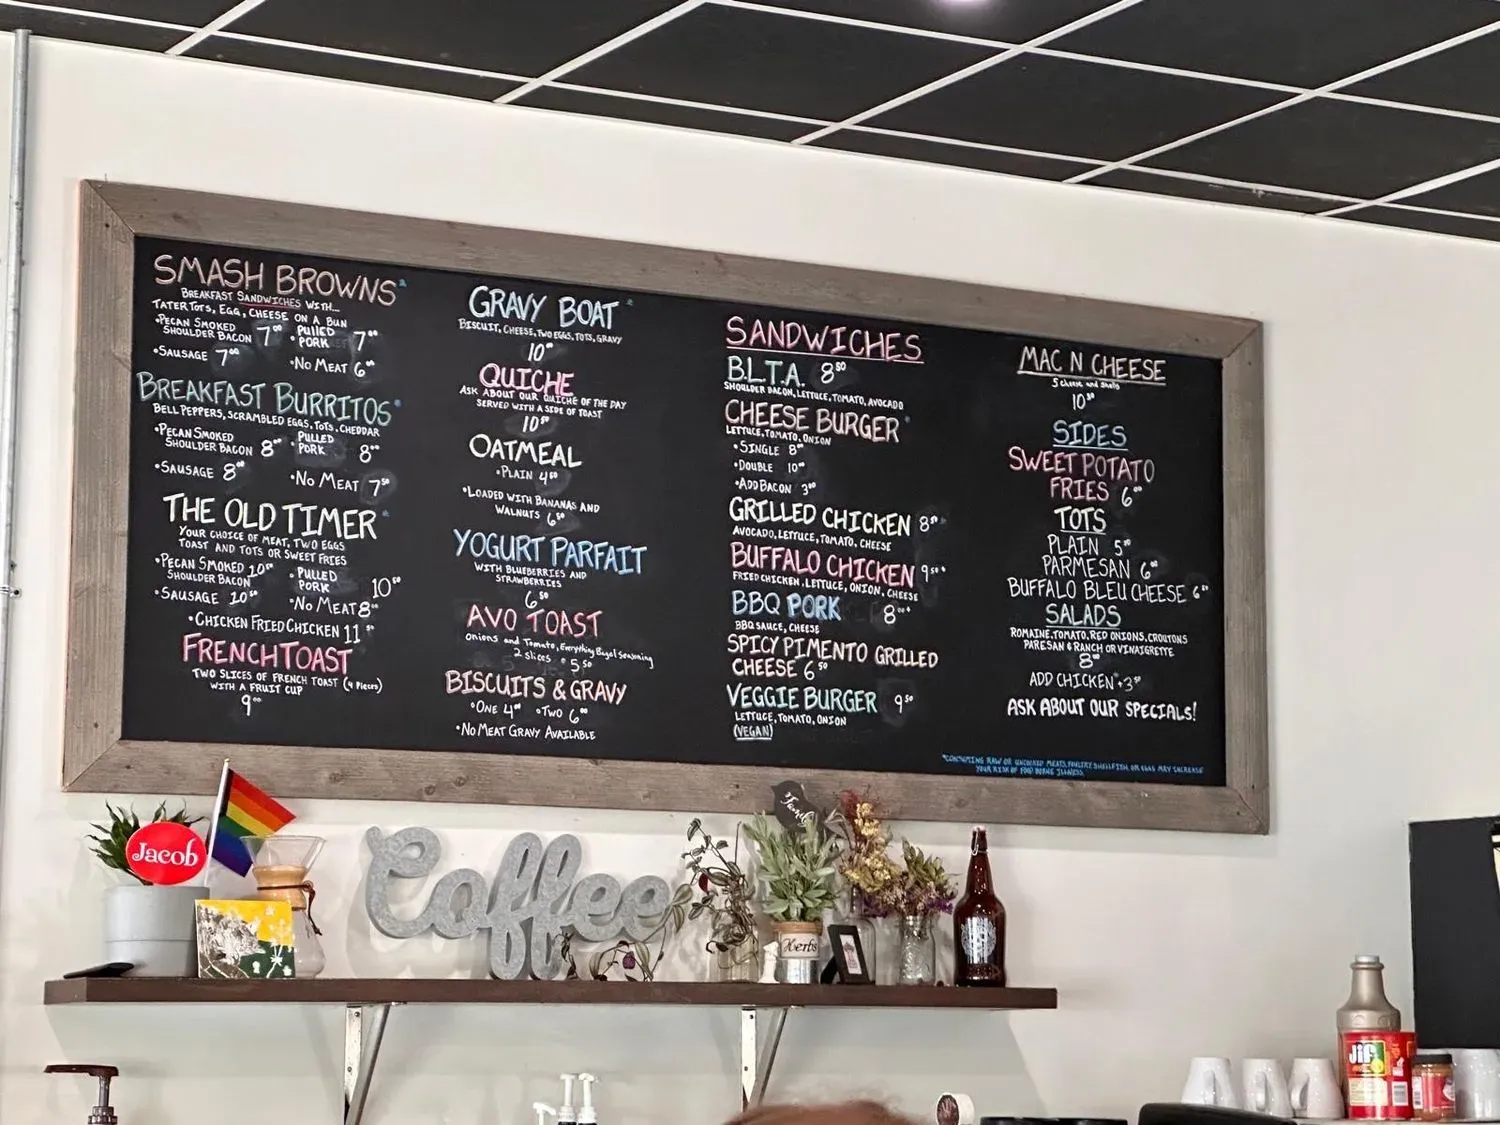 SMASH BROWNS*
BREAKFAST SANDWICHES WITH...
TATER TOTS, EGG, CHEESE ON A BUN
•PECAN SMOKED SHOULDER BACON 7⁰⁰
•PULLED PORK 7⁰⁰
•SAUSAGE 7⁰⁰
•NO MEAT 6⁰⁰
BREAKFAST BURRITOS*
BELL PEPPERS, SCRAMBLED EGGS, TOTS, CHEDDAR
•PECAN SMOKED SHOULDER BACON 8⁰⁰
•PULLED PORK 8⁰⁰
•SAUSAGE 8⁰⁰
•NO MEAT 7⁵⁰
THE OLD TIMER*
YOUR CHOICE OF MEAT, TWO EGGS
TOAST AND TOTS OR SWEET FRIES
•PECAN SMOKED SHOULDER BACON 10⁵⁰
•PULLED PORK 10⁵⁰
•SAUSAGE 10⁵⁰
•NO MEAT 8⁰⁰
•CHICKEN FRIED CHICKEN 11
FRENCH TOAST
TWO SLICES OF FRENCH TOAST (4 Pieces)
WITH A FRUIT CUP
9⁰⁰
GRAVY BOAT*
BISCUIT, CHEESE, TWO EGGS, TOTS, GRAVY
10⁰⁰
QUICHE
ASK ABOUT OUR QUICHE OF THE DAY
SERVED WITH A SIDE OF TOAST
10⁵⁰
OATMEAL
•PLAIN 4⁵⁰
•LOADED WITH BANANAS AND
WALNUTS 6⁵⁰
YOGURT PARFAIT
WITH BLUEBERRIES AND
STRAWBERRIES
6⁵⁰
AVO TOAST
Onions and Tomato, Everything Bagel Seasoning
2 slices • 5⁵⁰
BISCUITS & GRAVY
•ONE 4⁰⁰ •TWO 6⁰⁰
•NO MEAT GRAVY AVAILABLE
SANDWICHES
B.L.T.A. 8⁵⁰
SHOULDER BACON, LETTUCE, TOMATO, AVOCADO
CHEESE BURGER*
LETTUCE, TOMATO, ONION
•SINGLE 8⁰⁰
•DOUBLE 10⁰⁰
•ADD BACON 3⁰⁰
GRILLED CHICKEN 8⁵⁰
AVOCADO, LETTUCE, TOMATO, CHEESE
BUFFALO CHICKEN 9⁵⁰
FRIED CHICKEN, LETTUCE, ONION, CHEESE
BBQ PORK 8⁰⁰
BBQ SAUCE, CHEESE
SPICY PIMENTO GRILLED
CHEESE 6⁵⁰
VEGGIE BURGER 9⁵⁰
LETTUCE, TOMATO, ONION
(VEGAN)
MAC N CHEESE
5 cheese and shells
10⁵⁰
SIDES
SWEET POTATO
FRIES 6⁰⁰
TOTS
PLAIN 5⁵⁰
PARMESAN 6⁰⁰
BUFFALO BLEU CHEESE 6⁵⁰
SALADS
ROMAINE, TOMATO, RED ONIONS, CROUTONS
PARESAN & RANCH OR VINAIGRETTE
8⁰⁰
ADD CHICKEN +3⁵⁰
ASK ABOUT OUR SPECIALS!
*CONSUMING RAW OR UNCOOKED MEATS, POULTRY, SHELLFISH, OR EGGS MAY INCREASE
YOUR RISK OF FOOD BORNE ILLNESS.
Jacob
Coffee
Herbs
Jif